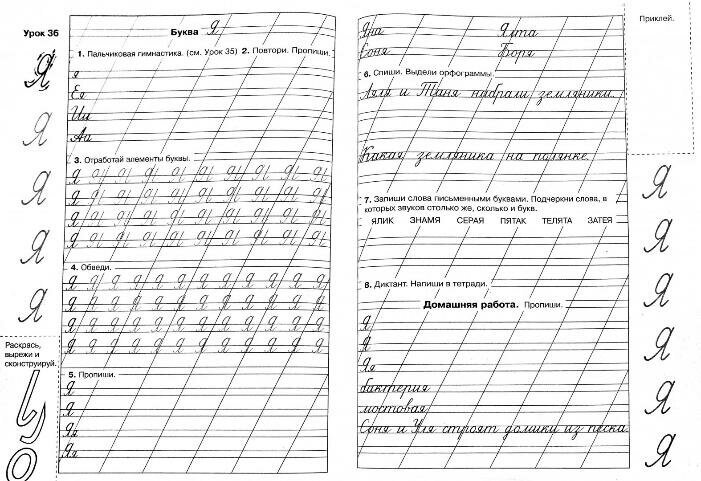 Урок 36
Буква Я
1. Пальчиковая гимнастика. (см. Урок 35) 2. Повтори. Пропиши.
я
Ея
Ии
Аа
3. Отработай элементы буквы.
Я Я Я Я Я Я Я Я Я Я Я
Я Я Я Я Я Я Я Я Я Я Я
Я Я Я Я Я Я Я Я Я Я Я
Я Я Я Я Я Я Я Я Я Я Я
4. Обведи.
Я Я Я Я Я Я Я Я Я Я Я Я
Я Я Я Я Я Я Я Я Я Я Я Я
Я Я Я Я Я Я Я Я Я Я Я Я
Я Я Я Я Я Я Я Я Я Я Я Я
5. Пропиши.
Я
Я
Яя
Яя
Я
Я
Я
Я
Я
Раскрась,
вырежи и
сконструируй.
Яна Ялта
Соня Боря
6. Спиши. Выдели орфограммы.
Ляля и Таня набрали земляники.
Какая земляника на полянке.
7. Запиши слова письменными буквами. Подчеркни слова, в
которых звуков столько же, сколько и букв.
ЯЛИК ЗНАМЯ СЕРАЯ ПЯТАК ТЕЛЯТА ЗАТЕЯ
8. Диктант. Напиши в тетради.
Домашняя работа. Пропиши.
Я
Я
Яя
бактерия
мостовая
Соня и Уля строят домики из песка.
Приклей.
Я
Я
Я
Я
Я
Я